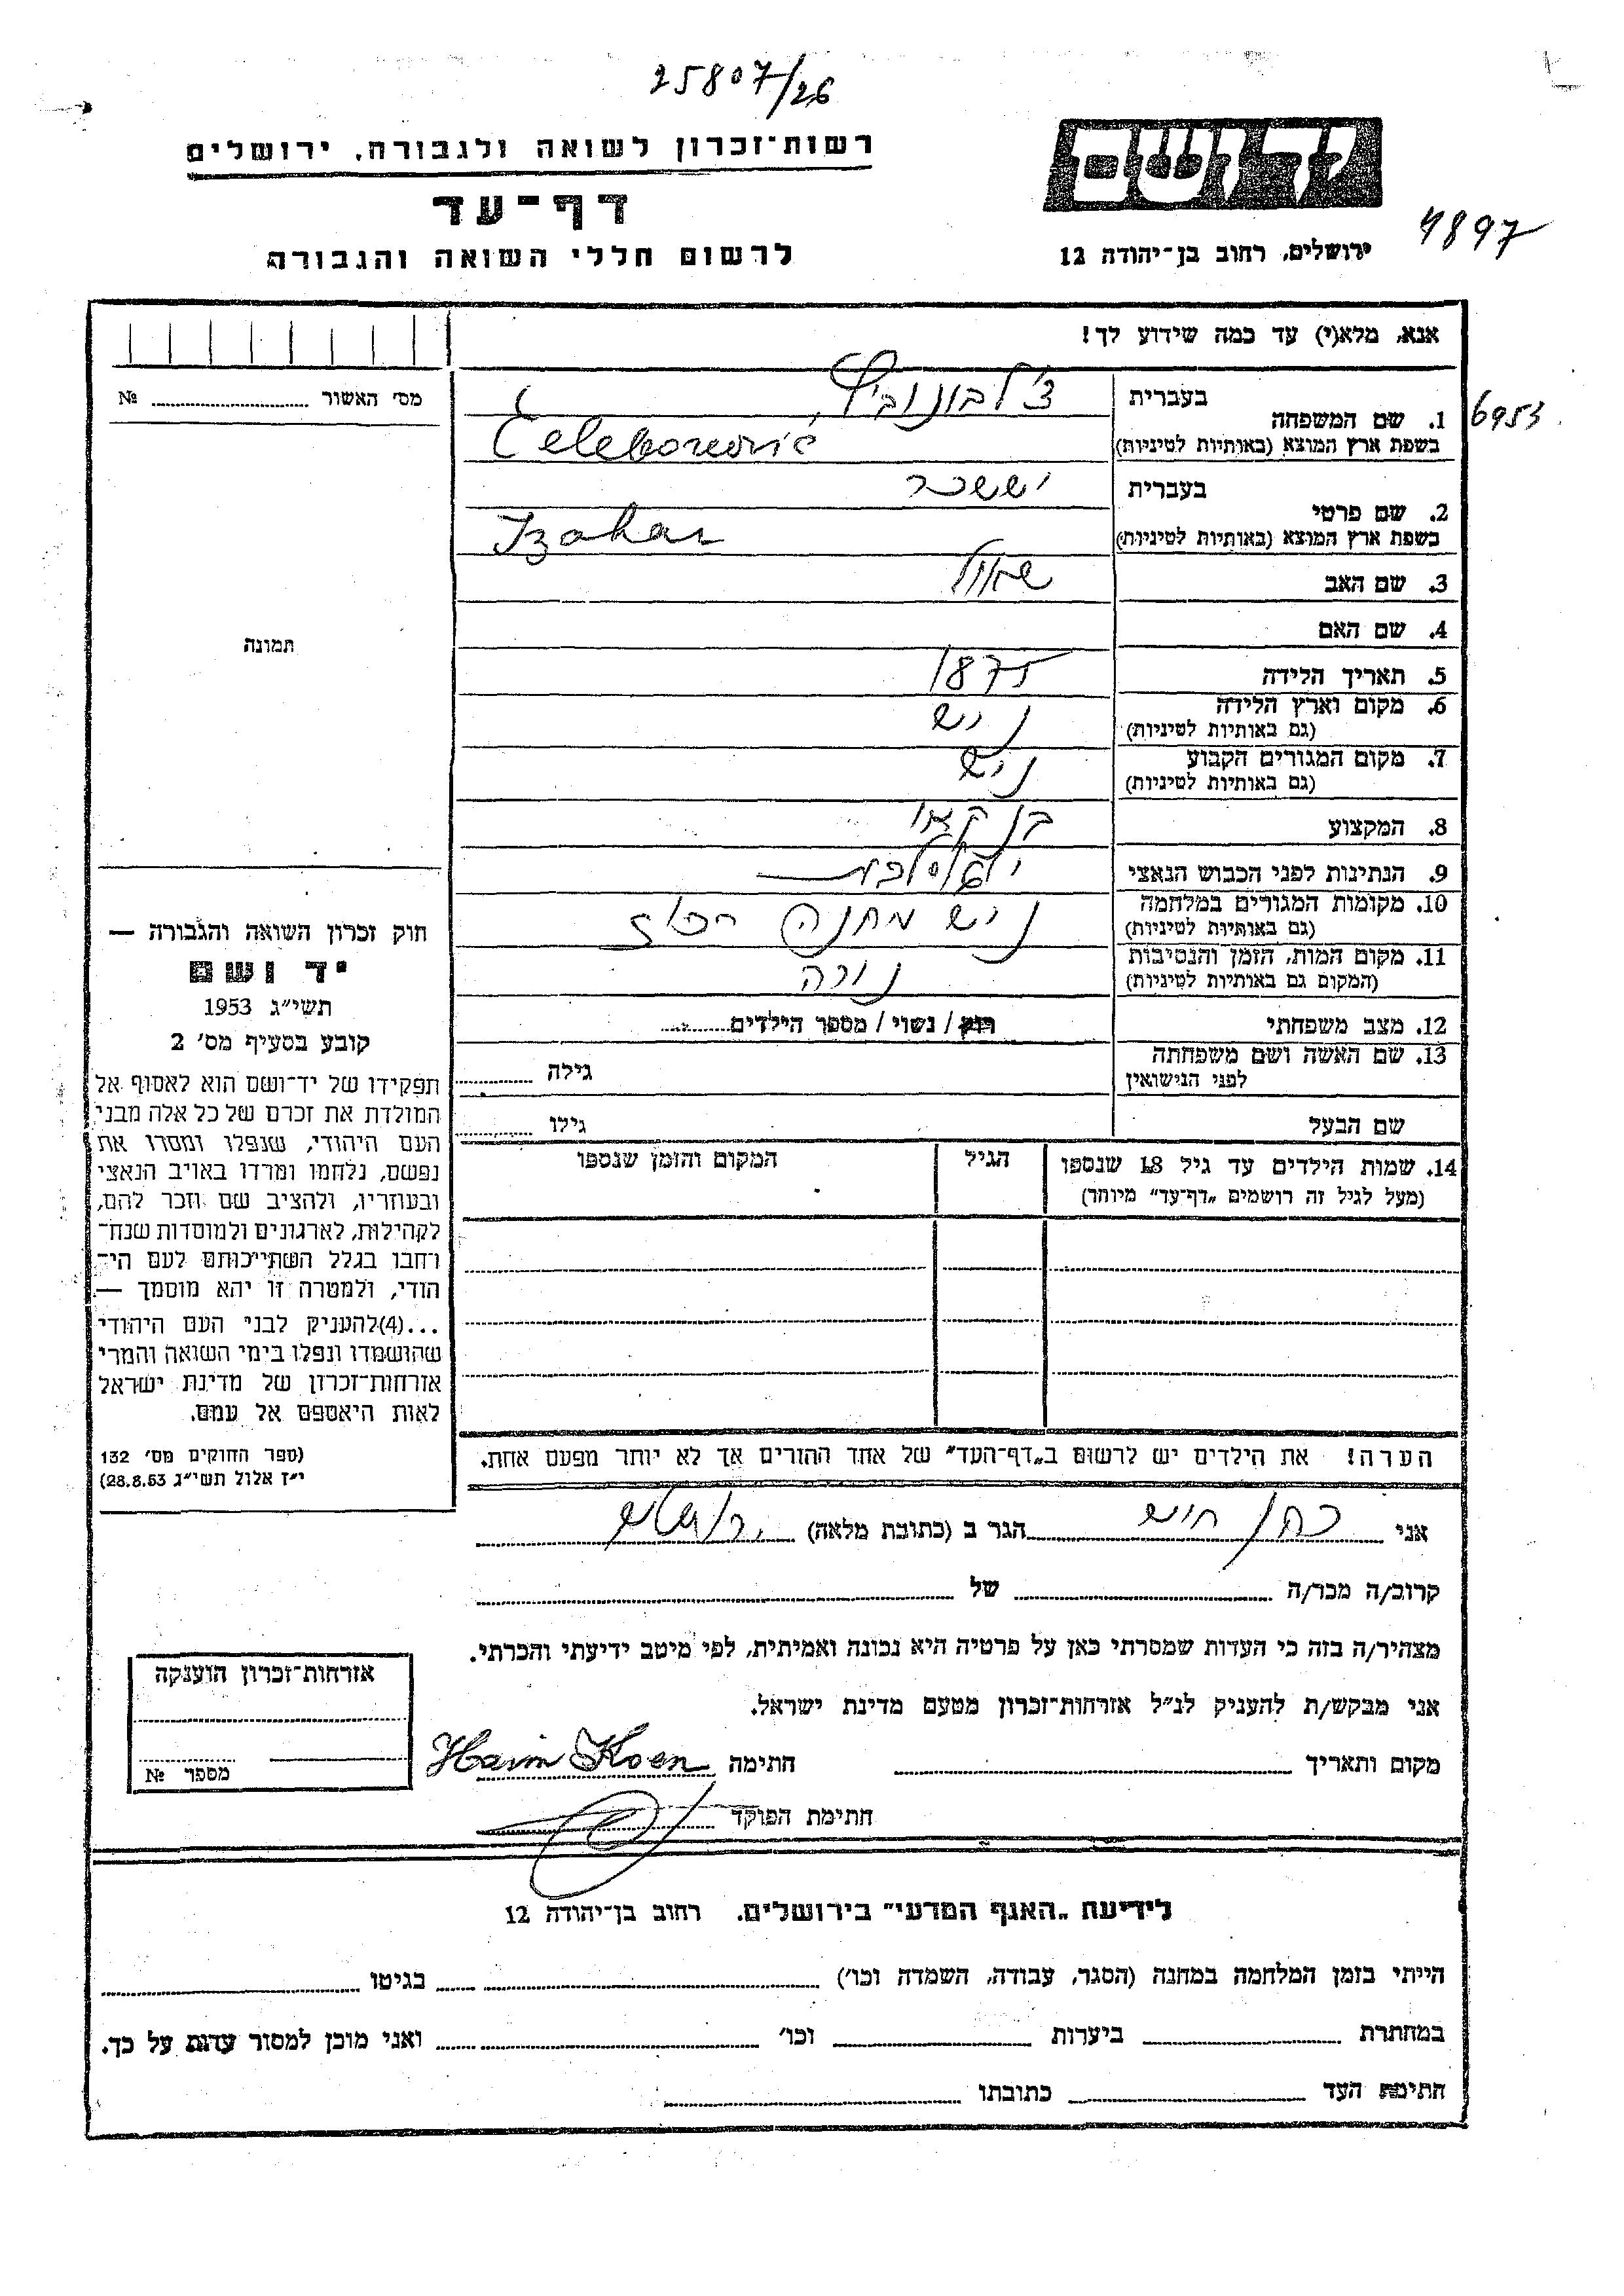 25807/26
רשות־זכרון לשואה ולגבורה, ירושלים
דף־עד
לרשום חללי השואה והגבורה
יד ושם
ירושלים, רחוב בן־יהודה 12
4897
אנא, מלא(י) עד כמה שידוע לך!
מס׳ האשור ........ №
תמונה
6953
1. שם המשפחה
בעברית צ׳לבונוביץ׳
בשפת ארץ המוצא (באותיות לטיניות) Čelebonović
2. שם פרטי
בעברית יששכר
בשפת ארץ המוצא (באותיות לטיניות) Izahar
3. שם האב שאול
4. שם האם
5. תאריך הלידה 1875
6. מקום וארץ הלידה ניש
(גם באותיות לטיניות)
7. מקום המגורים הקבוע ניש
(גם באותיות לטיניות)
8. המקצוע בנקאי
9. הנתינות לפני הכבוש הנאצי יוגוסלבית
10. מקומות המגורים במלחמה ניש מחנה רכוז
(גם באותיות לטיניות)
11. מקום המות, הזמן והנסיבות נורה
(המקום גם באותיות לטיניות)
12. מצב משפחתי רווק / נשוי / מספר הילדים........
13. שם האשה ושם משפחתה
לפני הנישואין
גילה ........
שם הבעל
גילו ........
14. שמות הילדים עד גיל 18 שנספו
(מעל לגיל זה רושמים „דף־עד" מיוחד)
הגיל
המקום והזמן שנספו
הערה! את הילדים יש לרשום ב„דף־העד" של אחד ההורים אך לא יותר מפעם אחת.
חוק זכרון השואה והגבורה —
יד ושם
תשי״ג 1953
קובע בסעיף מס׳ 2
תפקידו של יד־ושם הוא לאסוף אל
המולדת את זכרם של כל אלה מבני
העם היהודי, שנפלו ומסרו את
נפשם, נלחמו ומרדו באויב הנאצי
ובעוזריו, ולהציב שם וזכר להם,
לקהילות, לארגונים ולמוסדות שנח־
רחבו בגלל השתייכותם לעם הי־
הודי, ולמטרה זו יהא מוסמך —
...(4)להעניק לבני העם היהודי
שהושמדו ונפלו בימי השואה והמרי
אזרחות־זכרון של מדינת ישראל
לאות היאספם אל עמם.
(ספר החוקים מס׳ 132
י״ז אלול תשי״ג 28.8.53)
אני כהן חיים הגר ב (כתובת מלאה) ירושלים
קרוב/ה מכר/ה ........ של ........
מצהיר/ה בזה כי העדות שמסרתי כאן על פרטיה היא נכונה ואמיתית, לפי מיטב ידיעתי והכרתי.
אני מבקש/ת להעניק לנ״ל אזרחות־זכרון מטעם מדינת ישראל.
מקום ותאריך ........ חתימה Haim Koen
חתימת הפוקד
אזרחות־זכרון הוענקה
מספר №
לידיעת „האגף המדעי" בירושלים. רחוב בן־יהודה 12
הייתי בזמן המלחמה במחנה (הסגר, עבודה, השמדה וכו׳) ........ בגיטו ........
במחתרת ........ ביערות ........ וכו׳ ........ ואני מוכן למסור עדות על כך.
חתימת העד ........ כתובתו ........